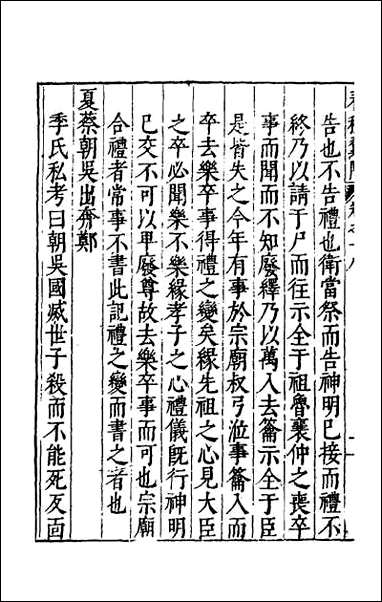 告也不告禮也衛當祭而告神明已接而禮不
終乃以請于尸而往示全于祖魯襄仲之喪卒
事而聞而不知廢繹乃以萬入去籥示全于臣
是皆失之今年有事於宗廟叔弓涖事籥入而
卒去樂卒事得禮之變矣緣先祖之心見大臣
之卒必聞樂不樂緣孝子之心禮儀旣行神明
已交不可以卑廢尊故去樂卒事而可也宗廟
合禮者常事不書此記禮之變而書之者也
夏蔡朝吳出奔鄭
季氏私考曰朝吳國滅世子殺而不能死反面